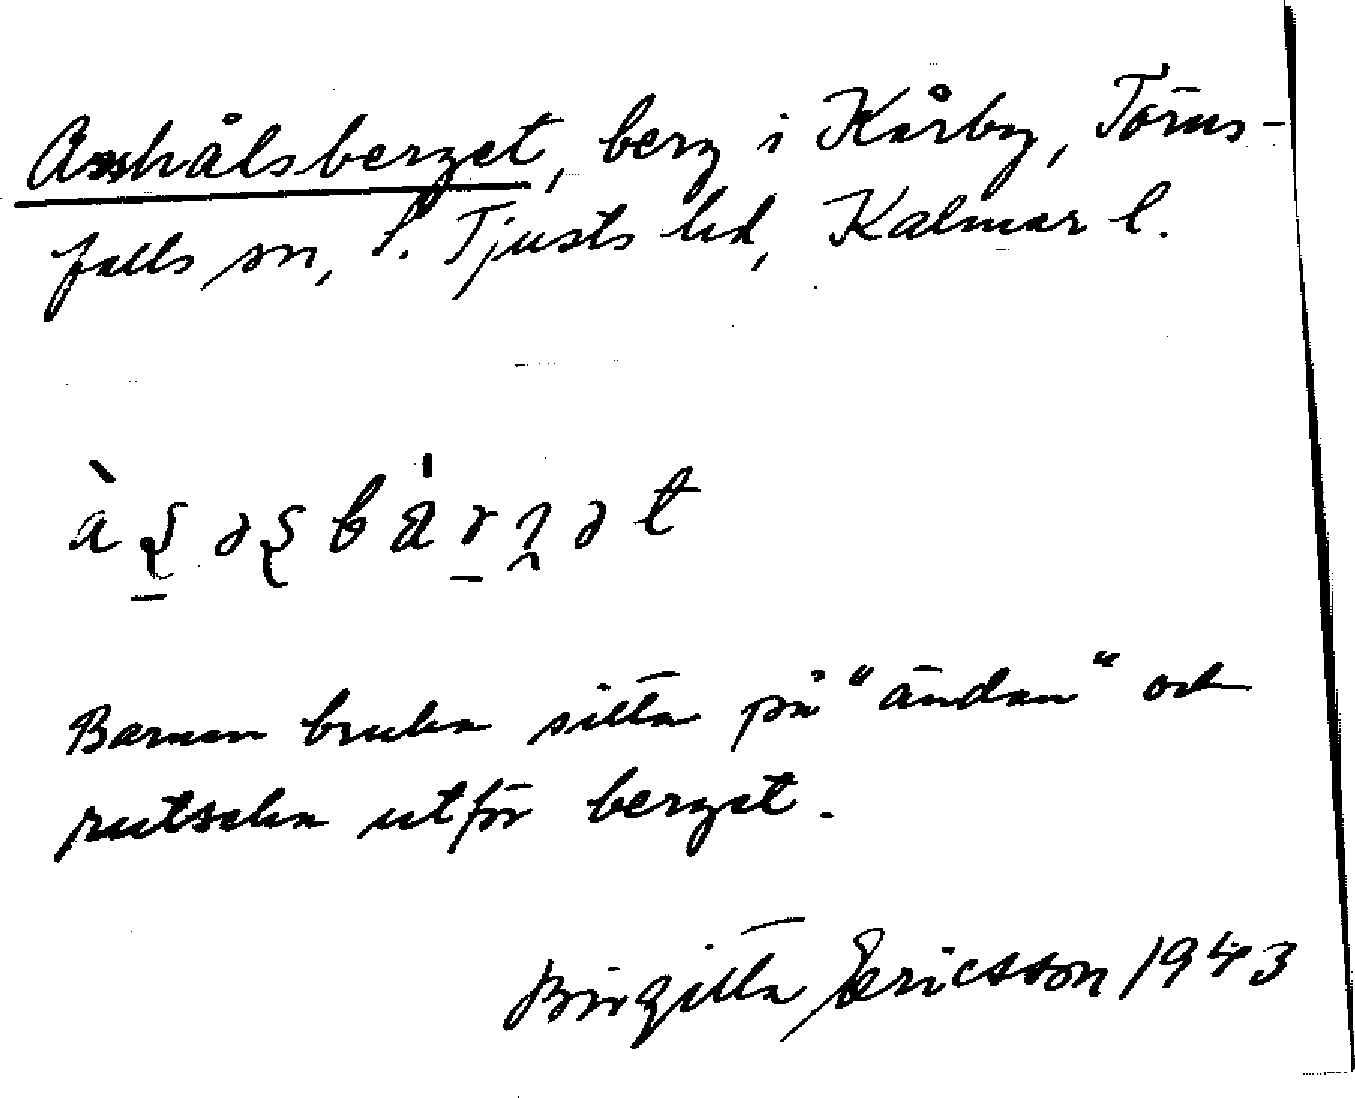 Asshålsberget, berg i Kårby, Törns-
falls sn, S. Tjusts hd, Kalmar l.
Barnen bruka sitta på "ändan" och
rutscha utför berget.
Birgitta Ericsson 1943